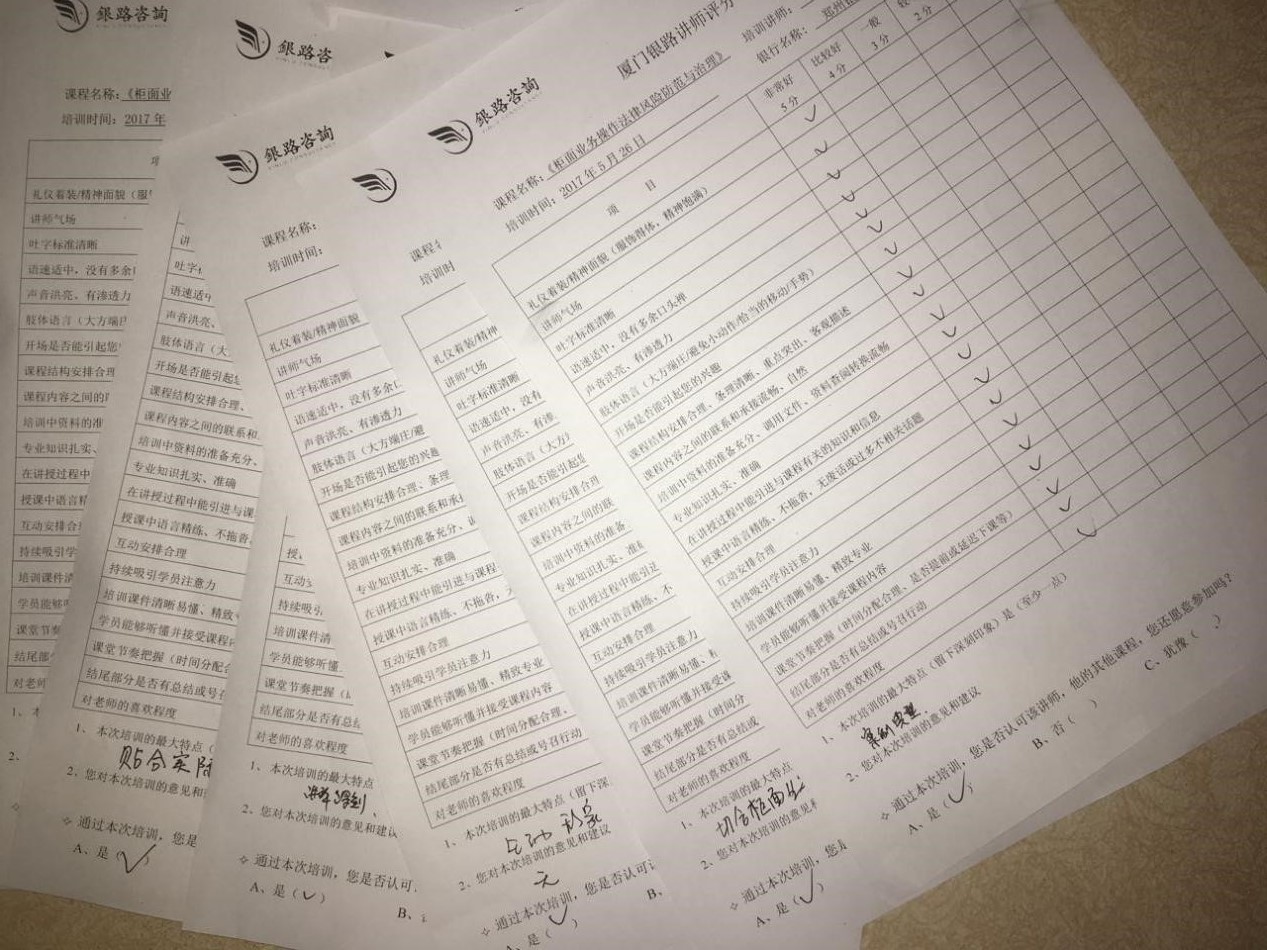 銀路咨詢
课程名称:《柜面业
培训时间:2017 年
项
礼仪着装/精神面貌(服
讲师气场
吐字标准清晰
语速适中,没有多余
声音洪亮、有渗透力
肢体语言(大方端
开场是否能引起您
课程结构安排合理
课程内容之间的
培训中资料的准
专业知识扎实、
在讲授过程中
授课中语言精
互动安排合
持续吸引学
培训课件清
学员能够
课堂节奏
结尾部
对老师
1、本
2、
銀路咨
讲
吐字
语速适中
声音洪亮、
肢体语言(大
开场是否能引起
课程结构安排合理、
课程内容之间的联系和
培训中资料的准备充分、
专业知识扎实、准确
在讲授过程中能引进与课
授课中语言精练、不拖沓
互动安排合理
持续吸引学员注意力
培训课件清晰易懂、精致
学员能够听懂并接受课程
课堂节奏把握(时间分配
结尾部分是否有总结或号
对老师的喜欢程度
1、本次培训的最大特点(
贴合实际
2、您对本次培训的意见和
✧ 通过本次培训,您是
A、是(✓)
銀路咨詢
课程名称:
培训时间:
授
互动
持续吸引
培训课件清
学员能够听懂
课堂节奏把握(
结尾部分是否有总
对老师的喜欢程度
1、本次培训的最大特点
2、您对本次培训的意见和建议
✧ 通过本次培训,您是否认可
A、是(✓)
B、
礼仪着装/精神面貌
讲师气场
吐字标准清晰
语速适中,没有多余口
声音洪亮、有渗透力
肢体语言(大方端庄/避
开场是否能引起您的兴趣
课程结构安排合理、条理
课程内容之间的联系和承
培训中资料的准备充分、
专业知识扎实、准确
在讲授过程中能引进与课程
授课中语言精练、不拖沓,
互动安排合理
持续吸引学员注意力
培训课件清晰易懂、精致专业
学员能够听懂并接受课程内容
课堂节奏把握(时间分配合理、
结尾部分是否有总结或号召行动
对老师的喜欢程度
1、本次培训的最大特点(留下深
生动 形象
2、您对本次培训的意见和建议
无
✧ 通过本次培训,您是否认可
A、是(✓)
B、
课程名
培训时
礼仪着装/精神
讲师气场
吐字标准清晰
语速适中,没有
声音洪亮、有渗
肢体语言(大方
开场是否能引起
课程结构安排合理
课程内容之间的联
培训中资料的准备
专业知识扎实、准
在讲授过程中能引进
授课中语言精练、不
互动安排合理
持续吸引学员注意力
培训课件清晰易懂、
学员能够听懂并接受课
课堂节奏把握(时间分
结尾部分是否有总结或
对老师的喜欢程度
1、本次培训的最大特点
切合柜面业
2、您对本次培训的意见
✧ 通过本次培训,您
A、是(✓)
銀路咨詢
厦门银路讲师评分
课程名称:《柜面业务操作法律风险防范与治理》
培训讲师:
培训时间:2017 年 5 月 26 日
银行名称:郑州
项 目
非常好 5 分
比较好 4 分
一般 3 分
较 2 分
礼仪着装/精神面貌(服饰得体,精神饱满)
讲师气场
吐字标准清晰
语速适中,没有多余口头禅
声音洪亮、有渗透力
肢体语言(大方端庄/避免小动作/恰当的移动/手势)
开场是否能引起您的兴趣
课程结构安排合理、条理清晰、重点突出、客观描述
课程内容之间的联系和承接流畅、自然
培训中资料的准备充分、调用文件、资料查阅转换流畅
专业知识扎实、准确
在讲授过程中能引进与课程有关的知识和信息
授课中语言精练、不拖沓,无废话或过多不相关话题
互动安排合理
持续吸引学员注意力
培训课件清晰易懂、精致专业
学员能够听懂并接受课程内容
课堂节奏把握(时间分配合理、是否提前或延迟下课等)
结尾部分是否有总结或号召行动
对老师的喜欢程度
1、本次培训的最大特点(留下深刻印象)是(至少一点)
案例典型
2、您对本次培训的意见和建议
✧ 通过本次培训,您是否认可该讲师,他的其他课程,您还愿意参加吗?
A、是(✓)
B、否( )
C、犹豫( )